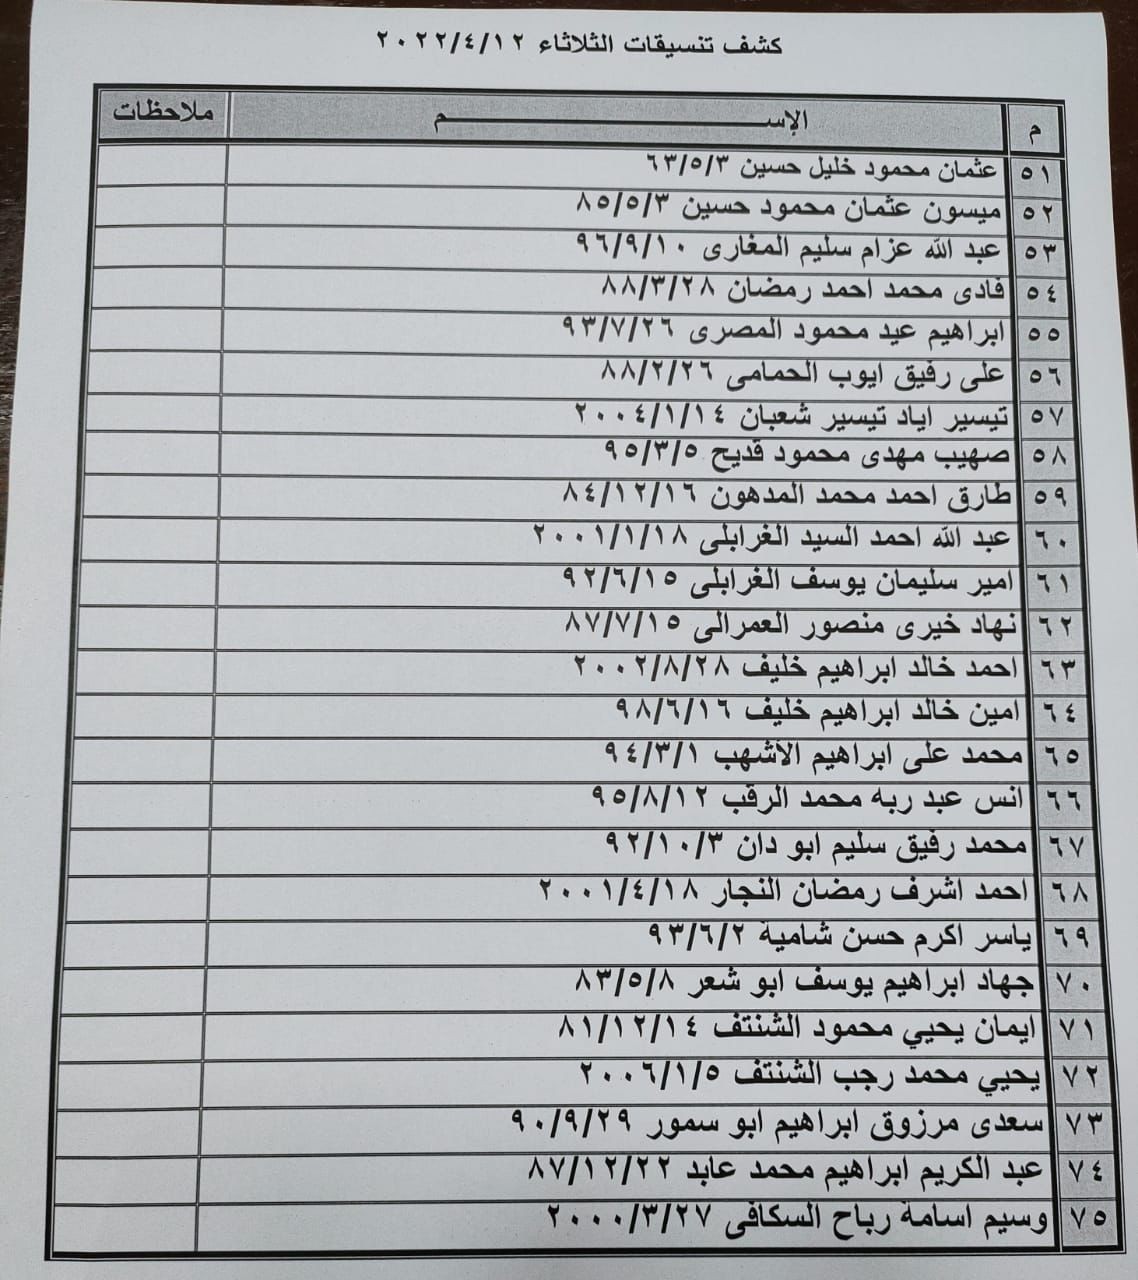 كشف تنسيقات الثلاثاء ٢٠٢٢/٤/١٢
م الإسـم ملاحظات
٥١ عثمان محمود خليل حسين ٦٣/٥/٣
٥٢ ميسون عثمان محمود حسين ٨٥/٥/٣
٥٣ عبد الله عزام سليم المغارى ٩٦/٩/١٠
٥٤ فادى محمد احمد رمضان ٨٨/٣/٢٨
٥٥ ابراهيم عيد محمود المصرى ٩٣/٧/٢٦
٥٦ على رفيق ايوب الحمامى ٨٨/٢/٢٦
٥٧ تيسير اياد تيسير شعبان ٢٠٠٤/١/١٤
٥٨ صهيب مهدى محمود قديح ٩٥/٣/٥
٥٩ طارق احمد محمد المدهون ٨٤/١٢/١٦
٦٠ عبد الله احمد السيد الغرابلى ٢٠٠١/١/١٨
٦١ امير سليمان يوسف الغرابلى ٩٢/٦/١٥
٦٢ نهاد خيرى منصور العمرالى ٨٧/٧/١٥
٦٣ احمد خالد ابراهيم خليف ٢٠٠٢/٨/٢٨
٦٤ امين خالد ابراهيم خليف ٩٨/٦/١٦
٦٥ محمد على ابراهيم الأشهب ٩٤/٣/١
٦٦ انس عبد ربه محمد الرقب ٩٥/٨/١٢
٦٧ محمد رفيق سليم ابو دان ٩٢/١٠/٣
٦٨ احمد اشرف رمضان النجار ٢٠٠١/٤/١٨
٦٩ ياسر اكرم حسن شامية ٩٣/٦/٢
٧٠ جهاد ابراهيم يوسف ابو شعر ٨٣/٥/٨
٧١ ايمان يحيي محمود الشنتف ٨١/١٢/١٤
٧٢ يحيي محمد رجب الشنتف ٢٠٠٦/١/٥
٧٣ سعدى مرزوق ابراهيم ابو سمور ٩٠/٩/٢٩
٧٤ عبد الكريم ابراهيم محمد عابد ٨٧/١٢/٢٢
٧٥ وسيم اسامة رباح السكافى ٢٠٠٠/٣/٢٧